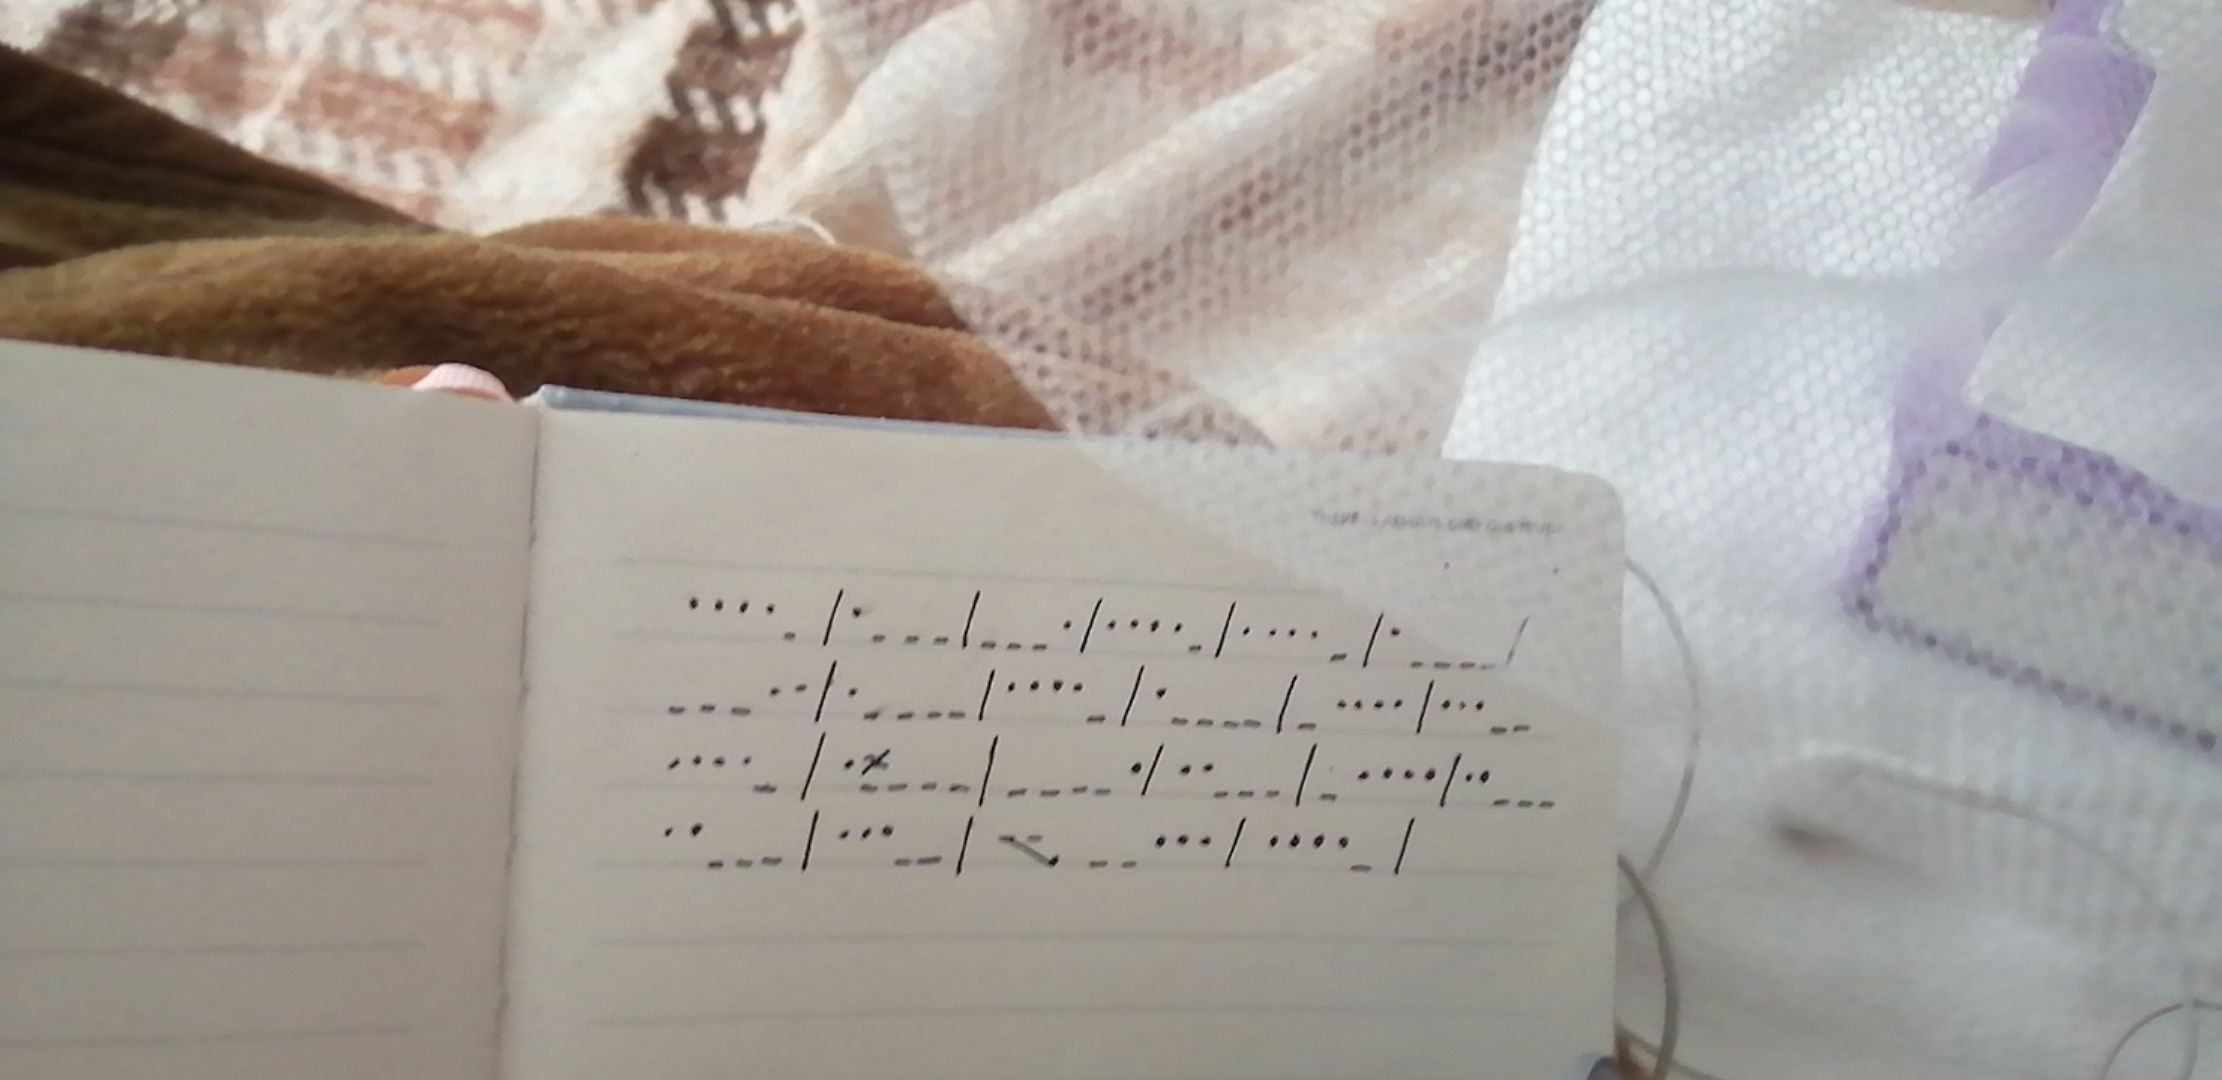 ....- / .--- / ---. / ....- / ....- / .---- /
---.. / .---- / ....- / .---- / -.... / ...-- 
....- / .---- / ----. / ..--- / -.... / ..---
..--- / ...-- / --... / ....- /